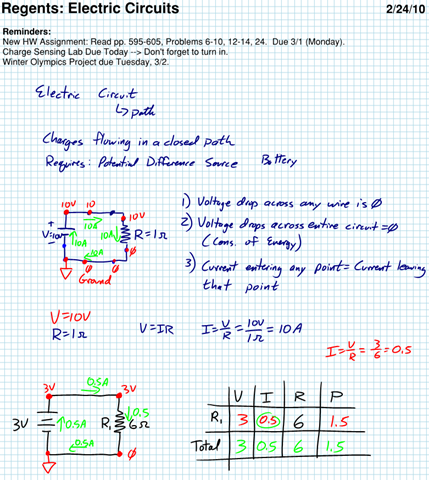 Regents: Electric Circuits 2/24/10
Reminders:
New HW Assignment: Read pp. 595-605, Problems 6-10, 12-14, 24. Due 3/1 (Monday).
Charge Sensing Lab Due Today --> Don't forget to turn in.
Winter Olympics Project due Tuesday, 3/2.
Electric Circuit
↳ path
Charges flowing in a closed path
Requires: Potential Difference Source Battery
10V 10 10V
+ V=10V -
10A
10A
10A
10A
R=1Ω
Ø Ø Ø
Ground
1) Voltage drop across any wire is Ø
2) Voltage drops across entire circuit=Ø
(Cons. of Energy)
3) Current entering any point = Current leaving
that point
V=10V
R=1Ω
V=IR
I=V/R=10V/1Ω=10A
I=V/R=3/6=0.5
3V 0.5A 3V
3V 0.5A R₁ 6Ω 0.5
0.5A Ø
V I R P
R₁ 3 0.5 6 1.5
Total 3 0.5 6 1.5